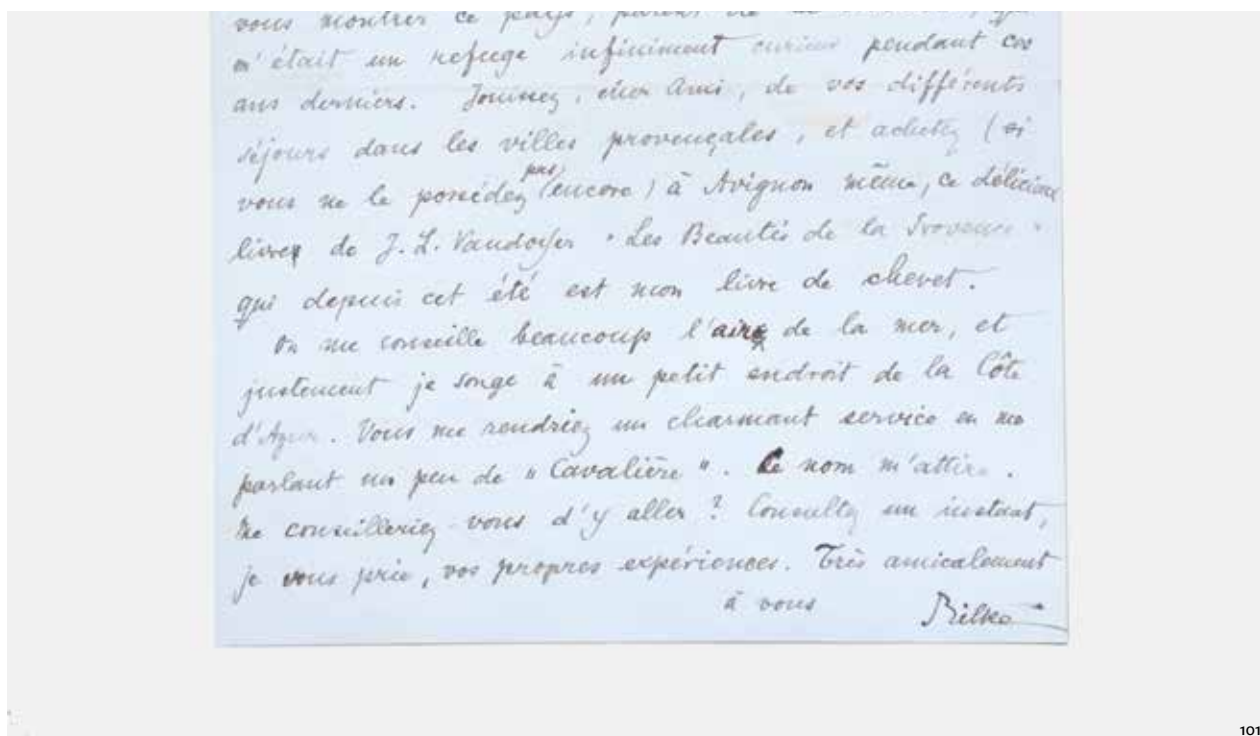 vous montrer ce pays, parent
m'était un refuge infiniment curieux pendant ces
ans derniers. Jouissez, cher Ami, de vos différents
séjours dans les villes provençales, et achetez (si
vous ne le possédez pas (encore) à Avignon même, ce délicieux
livre de J. L. Vaudoyer "Les Beautés de la Provence"
qui depuis cet été est mon livre de chevet.
On me conseille beaucoup l'air de la mer, et
justement je songe à un petit endroit de la Côte
d'Azur. Vous me rendriez un charmant service en me
parlant un peu de "Cavalière". Ce nom m'attire.
Me conseilleriez-vous d'y aller? Consultez un instant,
je vous prie, vos propres expériences. Très amicalement
à vous Rilke
101